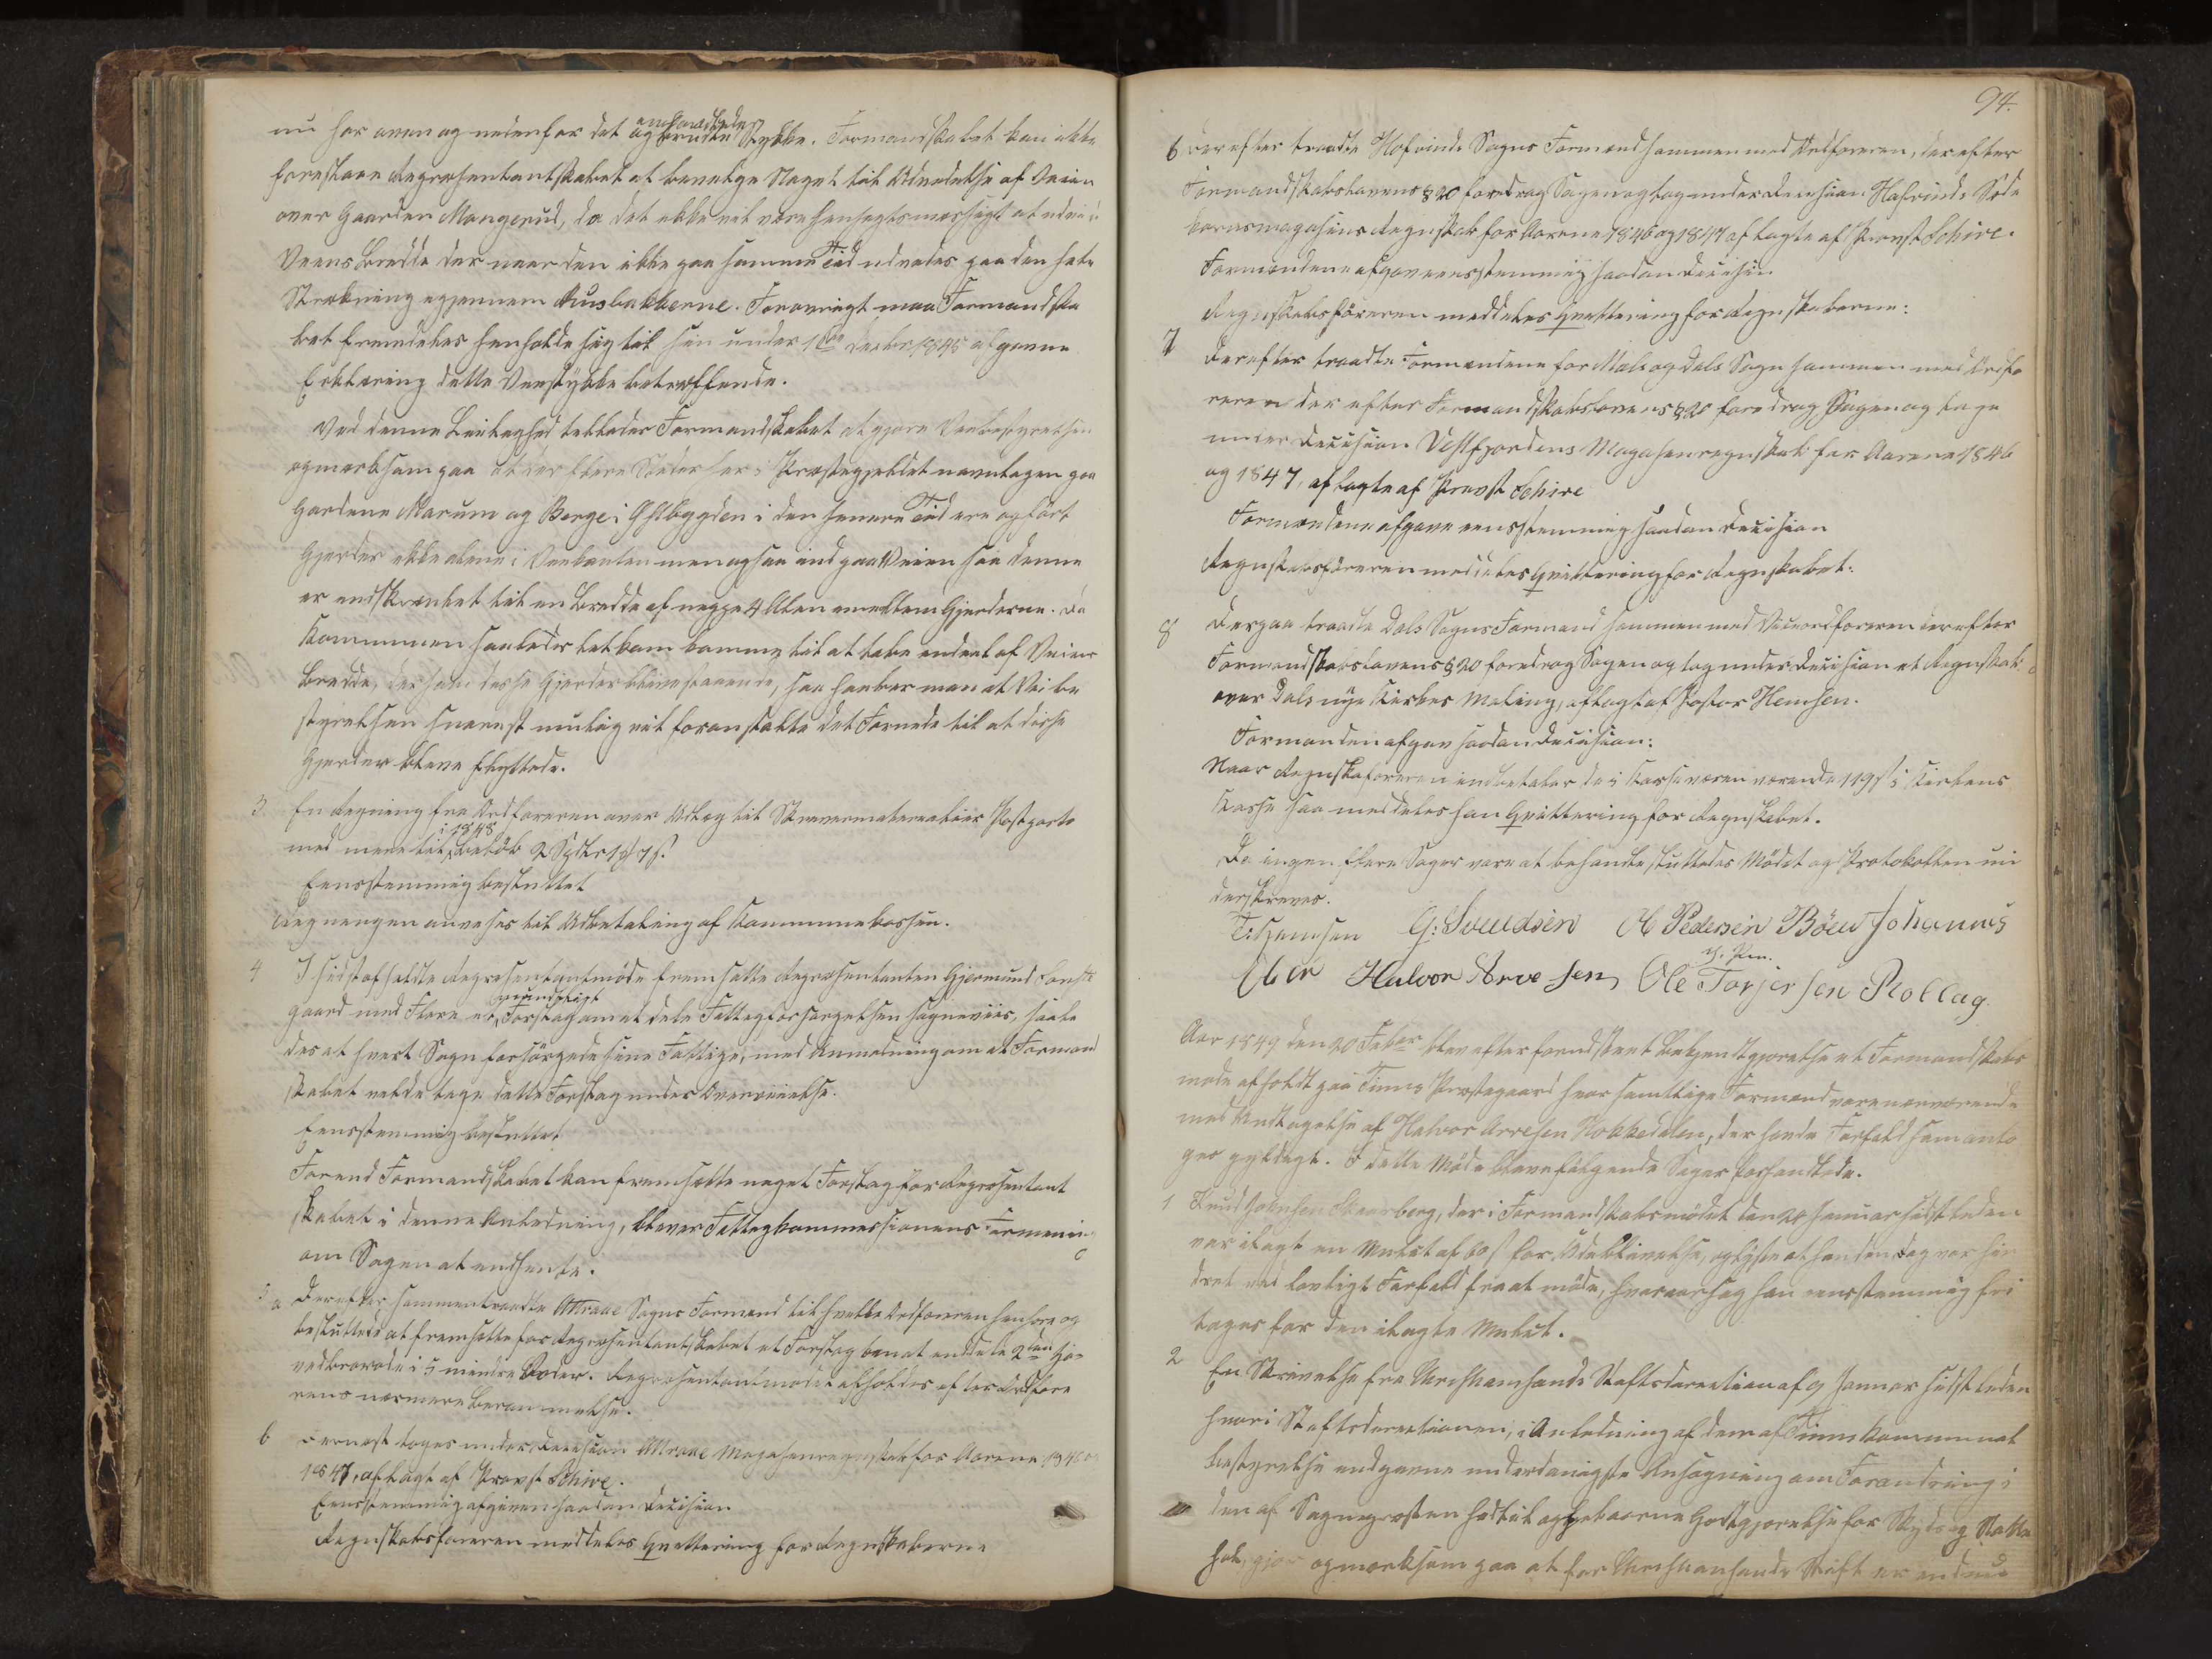 nu har oven og nedenfor det omhandlede
opbrudte Stykke. Formandskabet kan ikke
foreslaae Repræsentantskabet at bevilge Noget til Udvidelse af Veien
over Gaarden Mangerud, da det ikke vil være hensigtsmæssigt at udvide
Veens Bredde der naar den ikke paa samme Tid udvides paa den hele
Strækning igjennem Rusbakkerne. Forøvrigt maa Formandska
bet fremdeles henholde sig til sin under 1ste Decbr 1845 afgivne
Erklæring dette Veistykke betræffende.
Ved denne Leilighed tillader Formandskabet at gjøre Veibestyrelsen
opmærksom paa at der flere Steder her i Præstegjeldet navnligen paa
Gaardene Marum og Berge i Østbygden i den senere Tid ere opført
Gjerder ikke alene i Veikanten men ogsaa ind paa Veien saa denne
er indskrænket til en Bredde af neppe 4 Alen imellem Gjerderne. Da
Kommunen saaledes let kom til at tabe endeel af Veiens
Bredde, dersom disse Gjerder blive staaende, saa haaber man at Veibe
styrelsen snarest mulig vil foranstalte det Fornødne til at disse
Gjerder blive flyttede.
3 En Regning fra Ordføreren over Udlæg til Skrivermaterialier Postporto
med mere til i 1848 Beløb 2 Spdlr 1 # 7 s.
Eensstemmig besluttet
Regningen anvises til Udbetaling af Kommunekassen.
4 I sidstafholdte Repræsentantmøde fremsatte Repræsentanten Gjermund
gaard med Flere et grundstigt Forslag om at dele Fattigforsørgelsen sogneviis, saale
des at hvert Sogn forsørgede sine Fattige, med Anmodning om at Formand
skabet vilde tage dette Forslag under Overveielse.
Eensstemmig besluttet
Forend Formandskabet kan fremsætte noget Forslag for Repræsentant
skabet i denne Anledning, bliver Fattigkommissionens Formening
om Sagen at indhente.
5 a Derefter sammentraadte Attraae Sogns Formænd til hvilke Ordføreren henhører og
besluttede at fremsætte for Repræsentantskabet et Forslag om at inddele 2den
i 5 mindre Roder. Repræsentantmødet afholdes efter Ordføre
rens nærmere Berammelse.
6 Dernæst toges under Decision Attraae Magasinregnskab for Aarene 1846 og
1847, aflagt af Provst Schive.
Eensstemmig afgiven saadan Decision
Regnskabsføreren meddeles Qvittering for Regnskaberne
94.
6 Derefter traadte Hofvinds Sogns Formænd sammen med Ordføreren, der efter
Formandskabslovens § 20 foredrog Sagen og tog under Decision Hofvinds Sæde
kornsmagasins Regnskab for Aarene 1846 og 1847 aflagte af Provst Schive.
Formændene afgave eensstemmig saadan Decision
Regnskabsføreren meddeles Qvittering for Regnskaberne:
7 Derefter traadte Formændene for Mæls og Dals Sogn sammen med Ordfø
reren der efter Formandskabslovens § 20 foredrog Sagen og toge
under Decision Vestfjordens Magasinregnskab for Aarene 1846
og 1847, aflagte af Provst Schive
Formændene afgave eensstemmig saadan Decision
Regnskabsføreren meddeles Qvittering for Regnskabet:
8 Derpaa traadte Dals Sogns Formænd sammen med Viceordføreren der efter
Formandskabslovens § 20 foredrog Sagen og tog under Decision et Regnskab
over Dals nye Kirkes Maling, aflagt af Pastor Hemsen.
Formanden afgav saadan Decision:
Naar Regnskabsføreren indbetaler de i Kasse værende 119 s i Kirkens
Kasse saa meddeles han Qvittering for Regnskabet.
Da ingen flere Sager vare at behandle sluttedes Mødet og Protokollen un
derskreves.
T: Hemsen G: Svendsen O Pedersen Böen Johannes
m. Pen.
Olsen Halvor Arvesen Ole Torjersen Rollag
Aar 1849 den 20 Febr blev efter forudskeet Bekjendtgjørelse et Formandskabs
møde afholdt paa Tinns Præstegaard hvor samtlige Formænd vare nærværende
med Undtagelse af Halvor Arvesen Kokkedalen, der havde Forfald som anto
ges gyldigt. I dette Møde bleve følgende Sager forhandlede.
1 Knud Johnsen Skaarberg, der i Formandskabsmødet den 20 Januar sidstleden
var ilagt en Mulct af 60 s for Udeblivelse, oplyste at han den Dag var hin
dret ved lovligt Forfald fra at møde, hvoraarsag han eensstemmig fri
tages for den ilagte Mulct.
2 En Skrivelse fra Christiansands Stiftsdirection af 9 Januar sidstleden
hvori Stiftsdirectionen, i Anledning af den af Tinns Kommunal
bestyrelse indgivne underdanigste Ansøgning om Forandring i
den af Sognepræsten hidtil oppebaarne Godtgjørelse for Skyds og Natte
hold, gjør opmærksom paa at for Christiansands Stift er